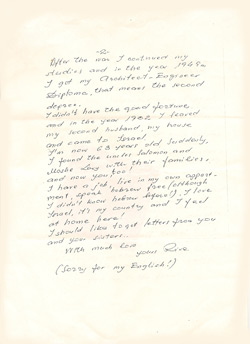 -2-
After the war I continued my
studies and in the year 1948
I got my Architect-Engineer
Diploma, that means the second
degree.
I didn't have the good fortune
and in the year 1962 I leaved
my second husband, my house
and came to Israel.
I'm now 63 years old. Suddenly,
I found the uncles Salomon and
Moshe with their families.
and now you, too!
I have a job, live in my own appart-
ment, speak hebrew free (although
I didn't know hebrew before!), I love
Israel, it's my country and I feel
at home here!
I should like to get letters from you
and your sisters.
With much love
yours
(Sorry for my English!)